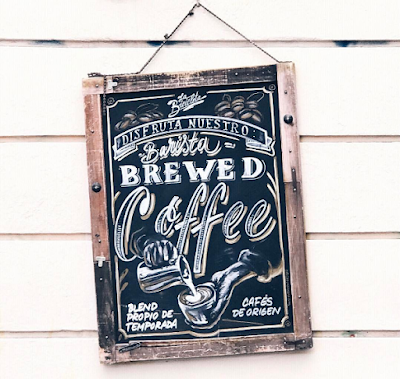 La
Barista
DISFRUTA NUESTRO
Barista
BREWED
Coffee
BLEND
PROPIO DE
TEMPORADA
CAFÉS
DE ORIGEN